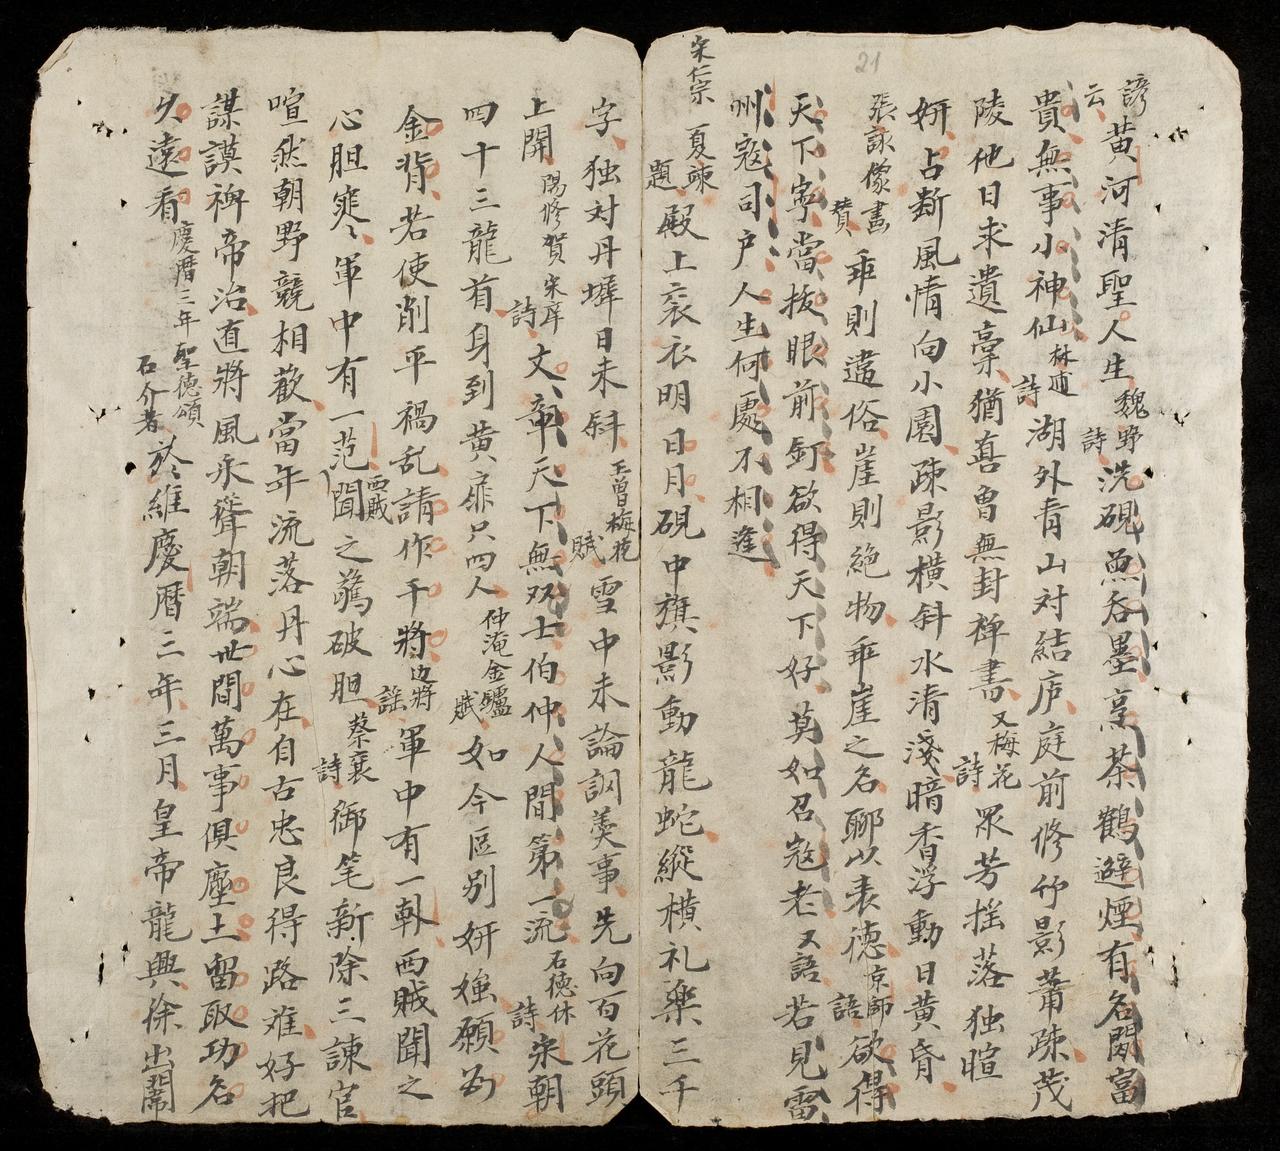 21
諺云黄河清聖人生魏野詩洗硯魚吞墨烹茶鶴避煙有名閑富
貴無事小神仙林逋詩湖外青山対結庐庭前修竹影蕭疎茂
陵他日求遺藁猶喜曽無封禅書又梅花詩眾芳揺落独暄
妍占断風情向小園疎影横斜水清淺暗香浮動日黄昏
張詠像畫賛乖則違俗崖則絶物乖崖之名聊以表徳京師語欲得
天下寧當拔眼前釘欲得天下好莫如召寇老又語若見雷
州寇司户人生何處不相逢
宋仁宗夏竦題殿上衮衣明日月硯中旗影動龍蛇縱横礼樂三千
字独対丹墀日未斜王曽梅花賦雪中未論調羹事先向百花頭
上開陽修賀宋庠詩文章天下無双士伯仲人間第一流石徳休詩宋朝
四十三龍首身到黄扉只四人仲淹金鑪賦如今區别妍媸願為
金背若使削平禍乱請作干將边將謡軍中有一韓西賊聞之
心胆寒軍中有一范西賊聞之驚破胆蔡襄詩御笔新除三諌官
喧然朝野競相歡當年流落丹心在自古忠良得路难好把
謀謨裨帝治直將風采聳朝端世間萬事俱塵土畄取功名
久遠看慶暦三年聖徳頌石介著於維慶暦三年三月皇帝龍興徐出闈